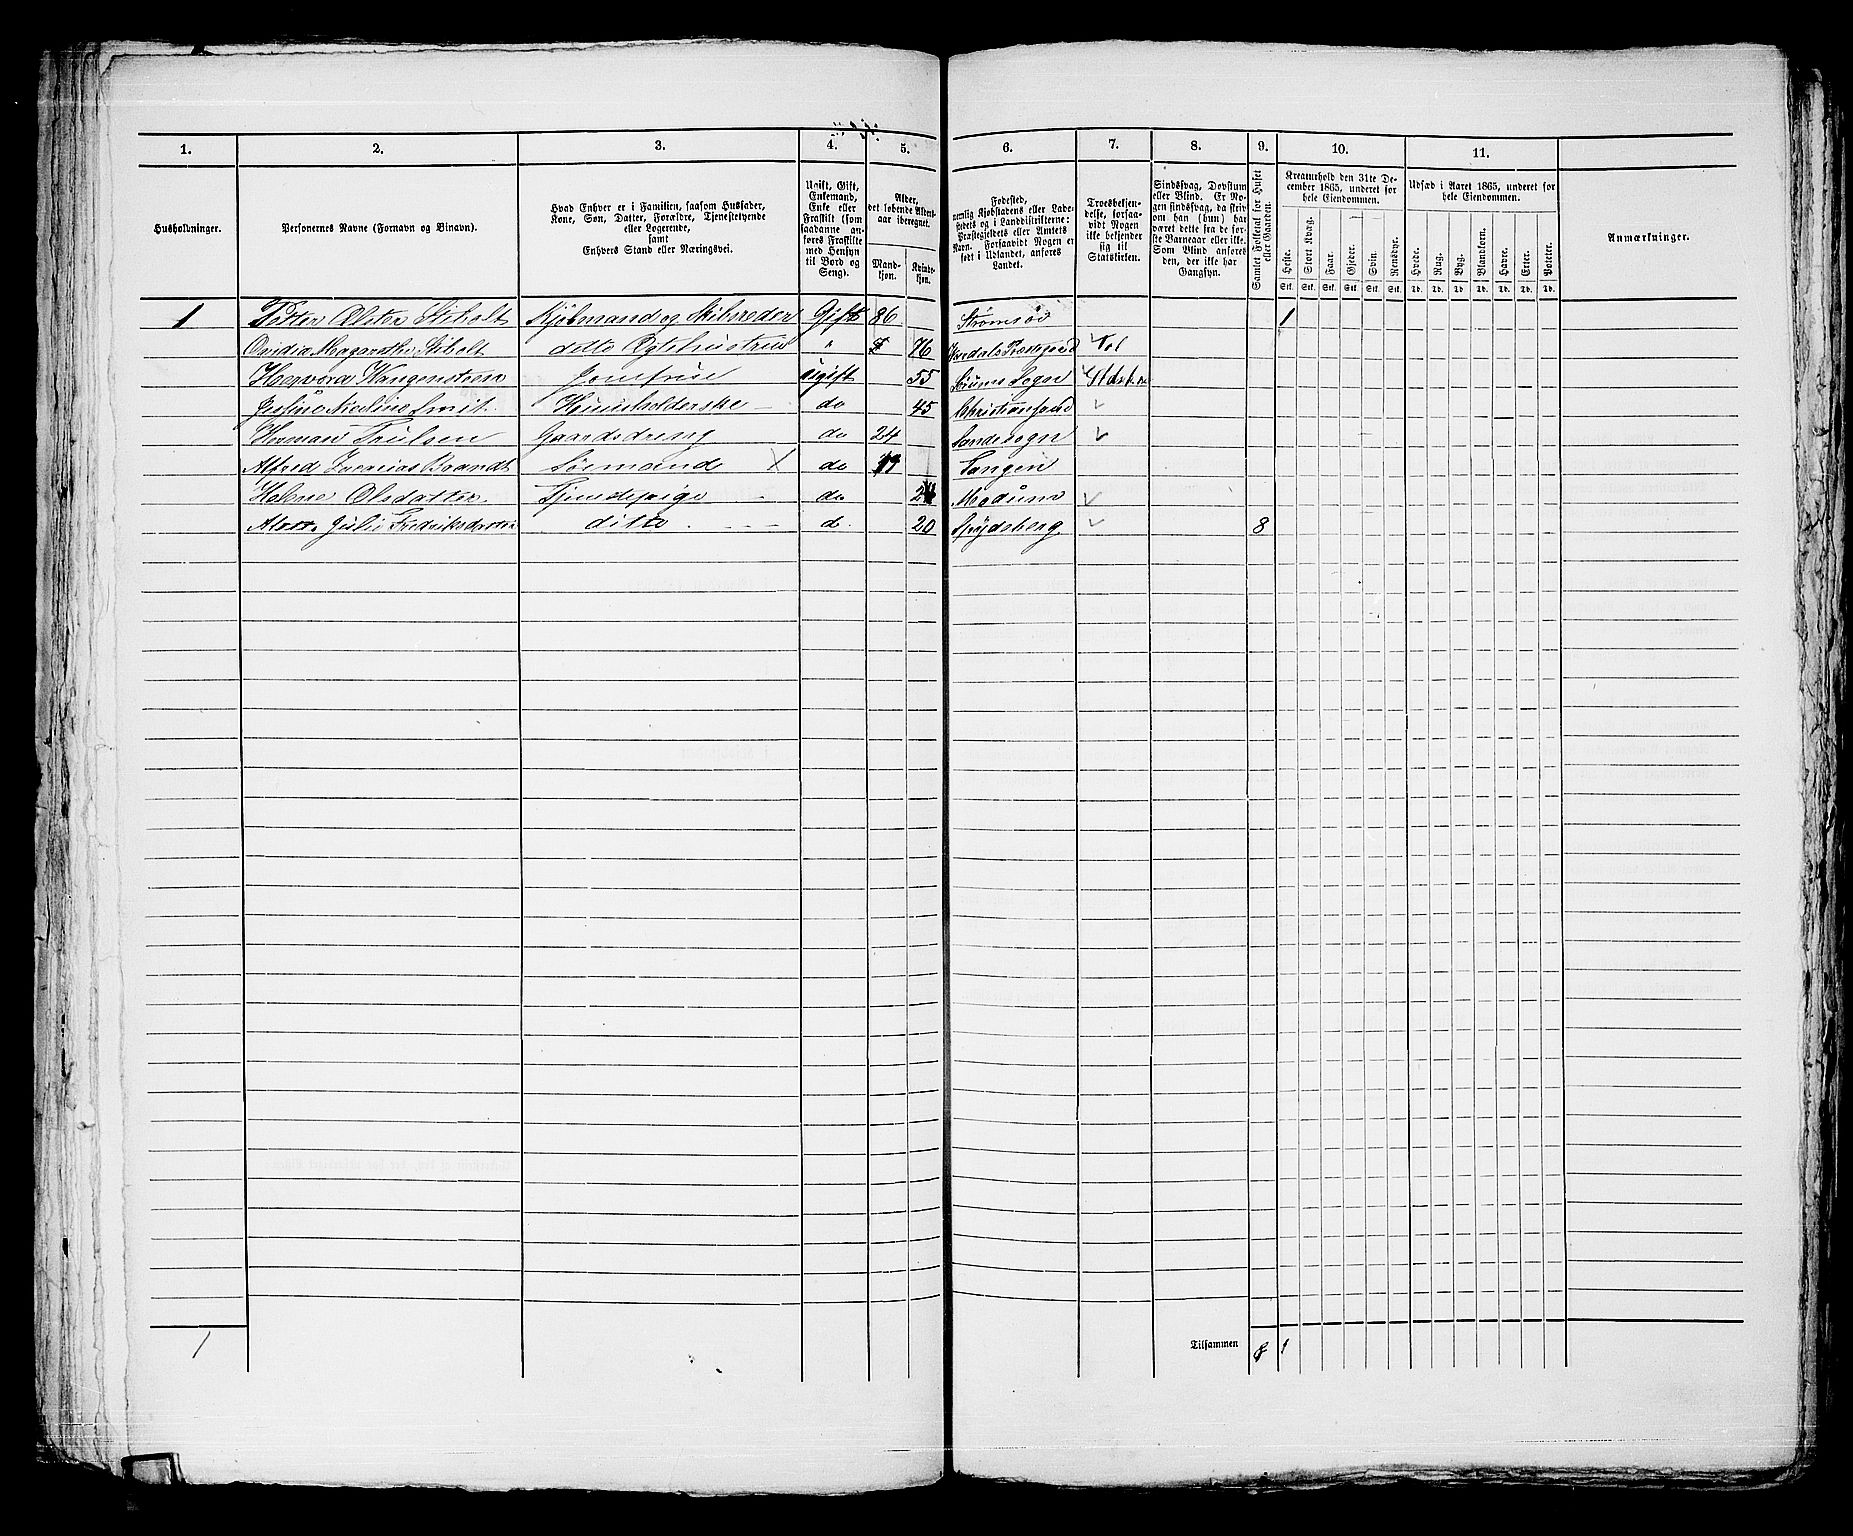 1. 2. 3. 4. 5. 6. 7. 8. 9. 10. 11.
Husholdninger.
Personernes Navne (Fornavn og Binavn).
Hvad Enhver er i Familien, saasom Husfader,
Kone, Søn, Datter, Forældre, Tjenestetyende
eller Logerende,
samt
Enhvers Stand eller Næringsvei.
Ugift, Gift,
Enkemand,
Enke eller
Fraskilt (som
saadanne an-
føres Fraskilte
med Hensyn
til Bord og
Seng).
Alder,
det løbende Alders-
aar iberegnet.
Mand-
kjøn.
Kvinde-
kjøn.
Fødested,
nemlig Kjøbstadens eller Lade-
stedets og i Landdistrikterne:
Præstegjeldets eller Amtets
Navn. Forsaavidt Nogen er
født i Udlandet, anføres
Landet.
Troesbekjen-
delse, forsaa-
vidt Nogen
ikke bekjender
sig til
Statskirken.
Sindssvag, Døvstum
eller Blind. Er No-
gen sindssvag, da skriv
om han (hun) har
været dette fra de før-
ste Barneaar eller ikke.
Som Blind anføres
den, der ikke har
Gangsyn.
Samlet Folketal for Huset
eller Gaarden.
Kreaturhold den 31te De-
cember 1865, underet for
hele Eiendommen.
Heste. Stort Kvæg. Faar. Gjeder. Svin. Rensdyr.
Stk. Stk. Stk. Stk. Stk. Stk.
Udsæd i Aaret 1865, underet for
hele Eiendommen.
Hvede. Rug. Byg. Blandkorn. Havre. Erter. Poteter.
Td. Td. Td. Td. Td. Td. Td.
Anmærkninger.
1 Peter Alster Stibolt Kjøbmand og Skibsreder Gift 86 Strømsøe 1
Ovidia Margarethe Stibolt ditto Egtehustrue " 76
Hervora Wangensteen Jomfrue Ugift 55 Sørums Sogn
Nicoline Smit. Huusholderske - do 45 Christiansand
Herman Trulsen Gaardsdreng do 24 Sandesogn
Alfred Zacarias Brandt Søemand X do 19 Tangen
Helene Olsdatter. Tjenestepige - do Modum
Julie Fredriksdatter ditto - - - d. 20 Spydeberg 8
1
Tilsammen 8 1